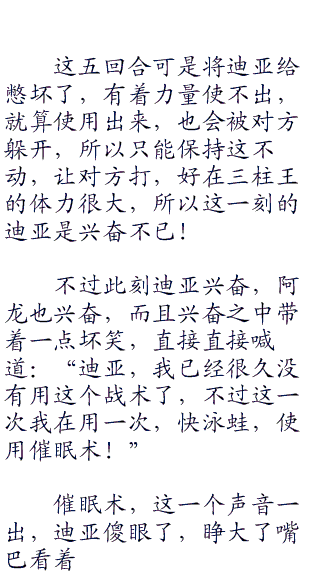 这五回合可是将迪亚给
憋坏了，有着力量使不出，
就算使用出来，也会被对方
躲开，所以只能保持这不
动，让对方打，好在三柱王
的体力很大，所以这一刻的
迪亚是兴奋不已！
不过此刻迪亚兴奋，阿
龙也兴奋，而且兴奋之中带
着一点坏笑，直接直接喊
道：“迪亚，我已经很久没
有用这个战术了，不过这一
次我在用一次，快泳蛙，使
用催眠术！”
催眠术，这一个声音一
出，迪亚傻眼了，睁大了嘴
巴看着